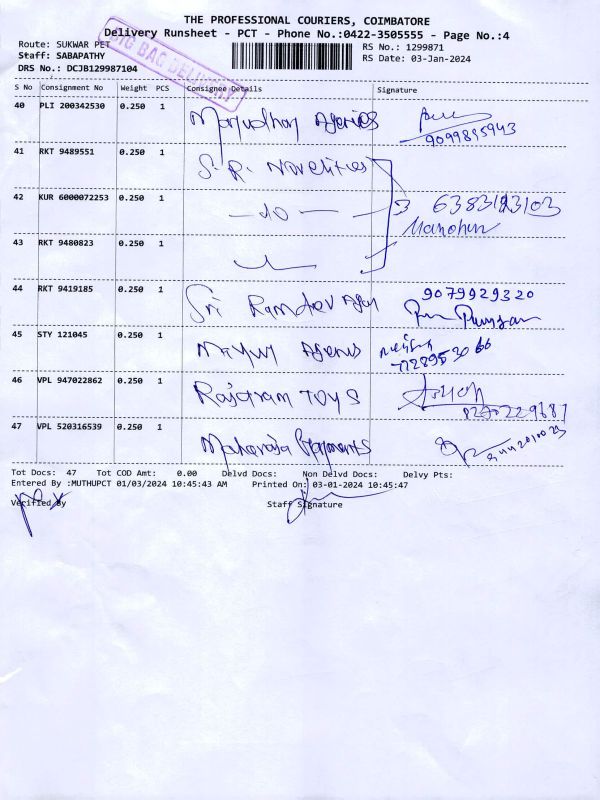 THE PROFESSIONAL COURIERS, COIMBATORE
Delivery Runsheet - PCT - Phone No.:0422-3505555 - Page No.:4
Route: SUKWAR PET
RS No.: 1299871
Staff: SABAPATHY
RS Date: 03-Jan-2024
DRS No.: DCJB129987104
BIG BAG DELIVERY
S No Consignment No Weight PCS Consignee Details Signature
40 PLI 200342530 0.250 1 Agencies
9099895943
41 RKT 9489551 0.250 1 S. R. Novelities
42 KUR 6000072253 0.250 1 — do —
Manohar
43 RKT 9480823 0.250 1
44 RKT 9419185 0.250 1 Sri Ramdev Agen 9079929320
45 STY 121045 0.250 1 Mayur Agencies
46 VPL 947022862 0.250 1 Rajaram TOYS
47 VPL 520316539 0.250 1 Maharaja Garments
Tot Docs: 47 Tot COD Amt: 0.00 Delvd Docs: Non Delvd Docs: Delvy Pts:
Entered By :MUTHUPCT 01/03/2024 10:45:43 AM Printed On: 03-01-2024 10:45:47
Verified By Staff Signature